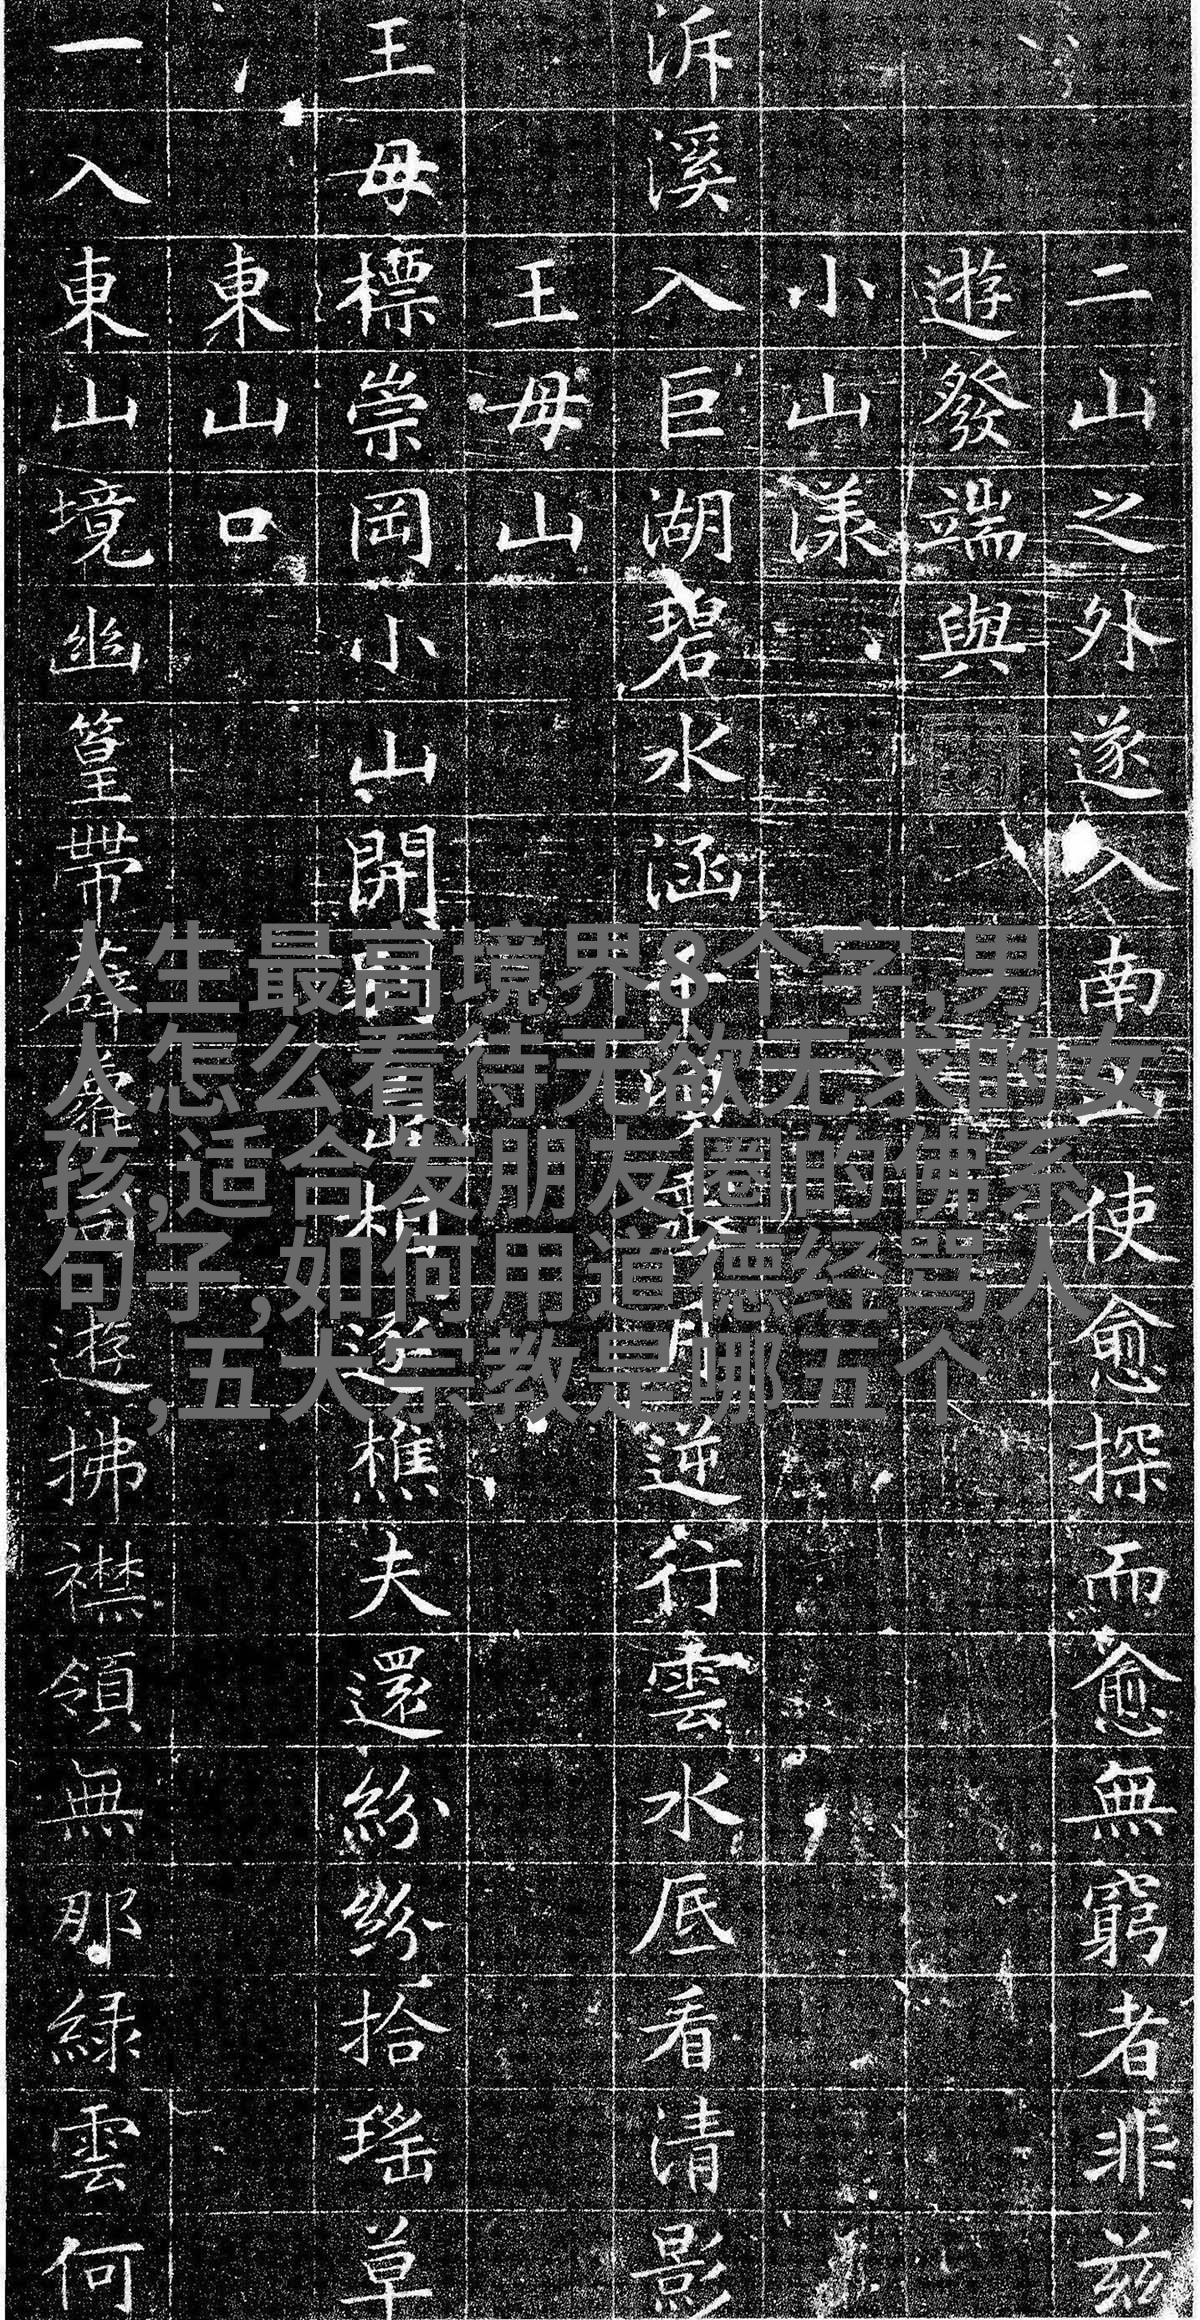 二山之外遂入南山使愈探而愈無窮者非茲
遊發端與
小山漾
泝溪入巨湖碧水涵千頃乘月逆行雲水底看清影
王母山
王母標崇岡小山開相逐樵夫還紛紛拾瑤草
東山口
一入東山境幽篁帶薜蘿同遊拂襟領無那綠雲何
人生最高境界8个字,男
人怎么看待无欲无求的女
孩,适合发朋友圈的佛系
句子,如何用道德经骂人
,五大宗教是哪五个